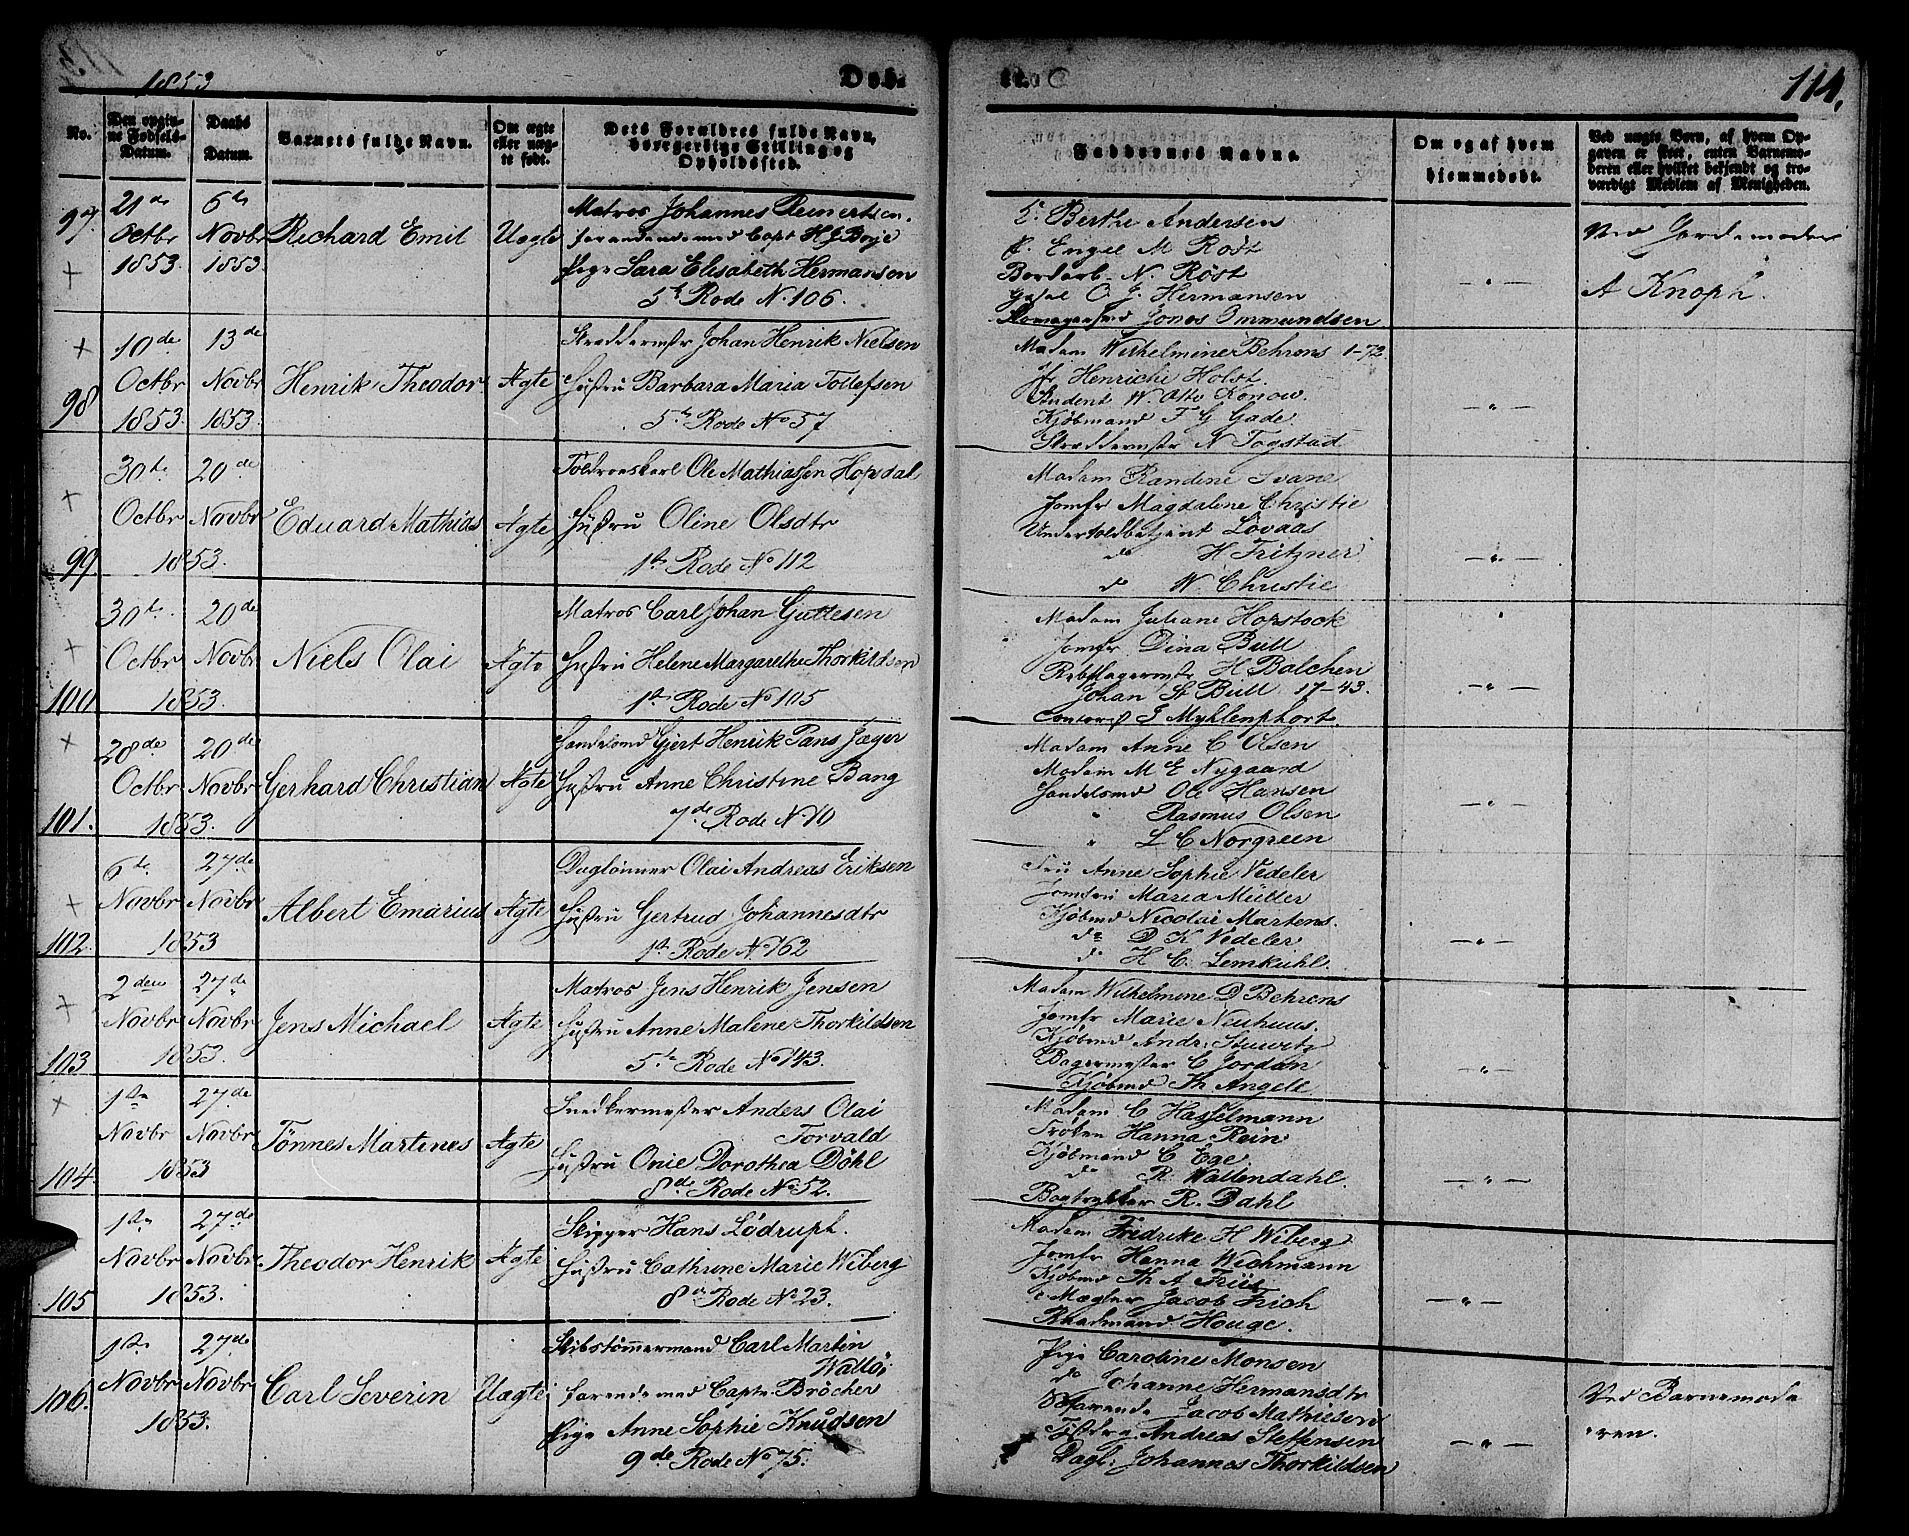 1853
Døb-
te.
114.
No.
Den opgiv-
ne Fødsels-
Datum.
Daabs
Datum.
Barnets fulde Navn.
Om ægte
eller uæg-
te født.
Dets Forældres fulde Navn,
borgerlige Stilling og
Opholdssted.
Faddernes Navne.
Om og af hvem
hjemmedøbt.
Ved uægte Børn, af hvem Op-
gaven er skeet, enten Barnemo-
deren eller hvilket bekjendt og tro-
værdigt Medlem af Menigheden.
97.
21de
Octbr
1853.
6te
Novbr
1853.
Richard Emil
Uægte
Matros Johannes Reinertsen.
farendende med Capt H J Børje
Pige Sara Elisabeth Hermansen
5te Rode No. 106.
Berthe Andersen
Engel M Rost
Bordarb. N. Røst
O. J. Hermansen
Jonas Ommundsen
- " -
Ved Jordemoder
A Knoph.
98
10de
Octbr
1853.
13de
Novbr
1853.
Henrik Theodor.
Ægte
Skreddermstr Johan Henrik Nielsen
Hustru Barbara Maria Tollefsen
5te Rode No 57
Madam Wilhelmine Behrens 1-72.
Jfr Henriche Holst.
Student W. Otto Konow.
Kjøbmand F G Gade.
Skreddermstr N Togstad
- " -
99
30te
Octbr
20de
Novbr
1853.
Eduard Mathias
Ægte
Toldroeskarl Ole Mathiassen Hopsdal
Hustru Oline Olsdtr
1ste Rode No 112
Madam Randine Svane
Jomfr Magdalene Christie
Undertoldbetjent Lovaas
do H Fritzner
do W. Christie
- " -
100
30te
Octbr
20de
Novbr
1853.
Niels Olai
Ægte
Matros Carl Johan Guttesen
Hustru Helene Margarethe Thorkildsen
1ste Rode No 105
Madam Juliane Hopstock
Jomfr. Dina Bull
Rebslagermstr H Balchen
Johan St Bull 17-43.
Contorst J Myhlenphort.
- " -
101.
28de
Octbr
20de
Novbr
1853.
Gerhard Christian
Ægte
Handelsmd Gjert Henrik Pans Jæger
Hustru Anne Christine Bang
7de Rode No 70
Madam Anne C Olsen
Madam M E Nygaard
Handelsmd Ole Hansen
" Rasmus Olsen
" L C Norgreen
- " -
102.
6te
Novbr
27de
Novbr
1853
Albert Emarius
Ægte
Daglønner Olai Andreas Eriksen
Hustru Gertrud Johannesdtr
1ste Rode No 162
Fru Anne Sophie Vedeler
Jomfru Maria Müller
Kjøbmd Nicolai Martens.
do D K Vedeler
do H C. Lemkühl.
- " -
103
2den
Novbr
27de
Novbr
1853.
Jens Michael
Ægte
Matros Jens Henrik Jensen
Hustru Anne Malene Thorkildsen
5te Rode No 143.
Madam Wilhelmine D Behrens
Jomfr Marie Neuhuus.
Kjøbmd Andr: Stuwitz
Bagermester C Jordan
Kjøbmd Th Angell
- " -
104
1ste
Novbr
27de
Novbr
1853
Tönnes Martines
Ægte
Snedkermester Anders Olai
Torvald
Hustru Onie Dorothea Döhl
8de Rode No 52.
Madam C Hasselmann
Frøken Hanna Rein
Kjøbmand C Ege
do R. Wallendahl.
Bogtrykker R. Dahl
- " -
105
1ste
Novbr
27de
Novbr
1853.
Theodor Henrik
Ægte
Skipper Hans Lödruph.
Hustru Cathrine Marie Wiberg
8de Rode No 23.
Madam Fredrike H Wiberg
Jomfr Hanna Wichmann
Kjøbmd Th A Friis
Mægler Jacob Frich
Raadmand Houge.
- " -
106.
1ste
Novbr
27de
Novbr
1853.
Carl Severin
Uægte
Skibstömmermand Carl Martin
Waltö;
farende med Captn Bröcher
Pige Anne Sophie Knudsen
9de Rode No 75.
Pige Caroline Monsen
do Johanne Hermansdtr
Søfarende Jacob Mathiesen
Andreas Steffensen
Dagl: Johannes Thorkildsen
- " -
Ved Barnemode
ren.